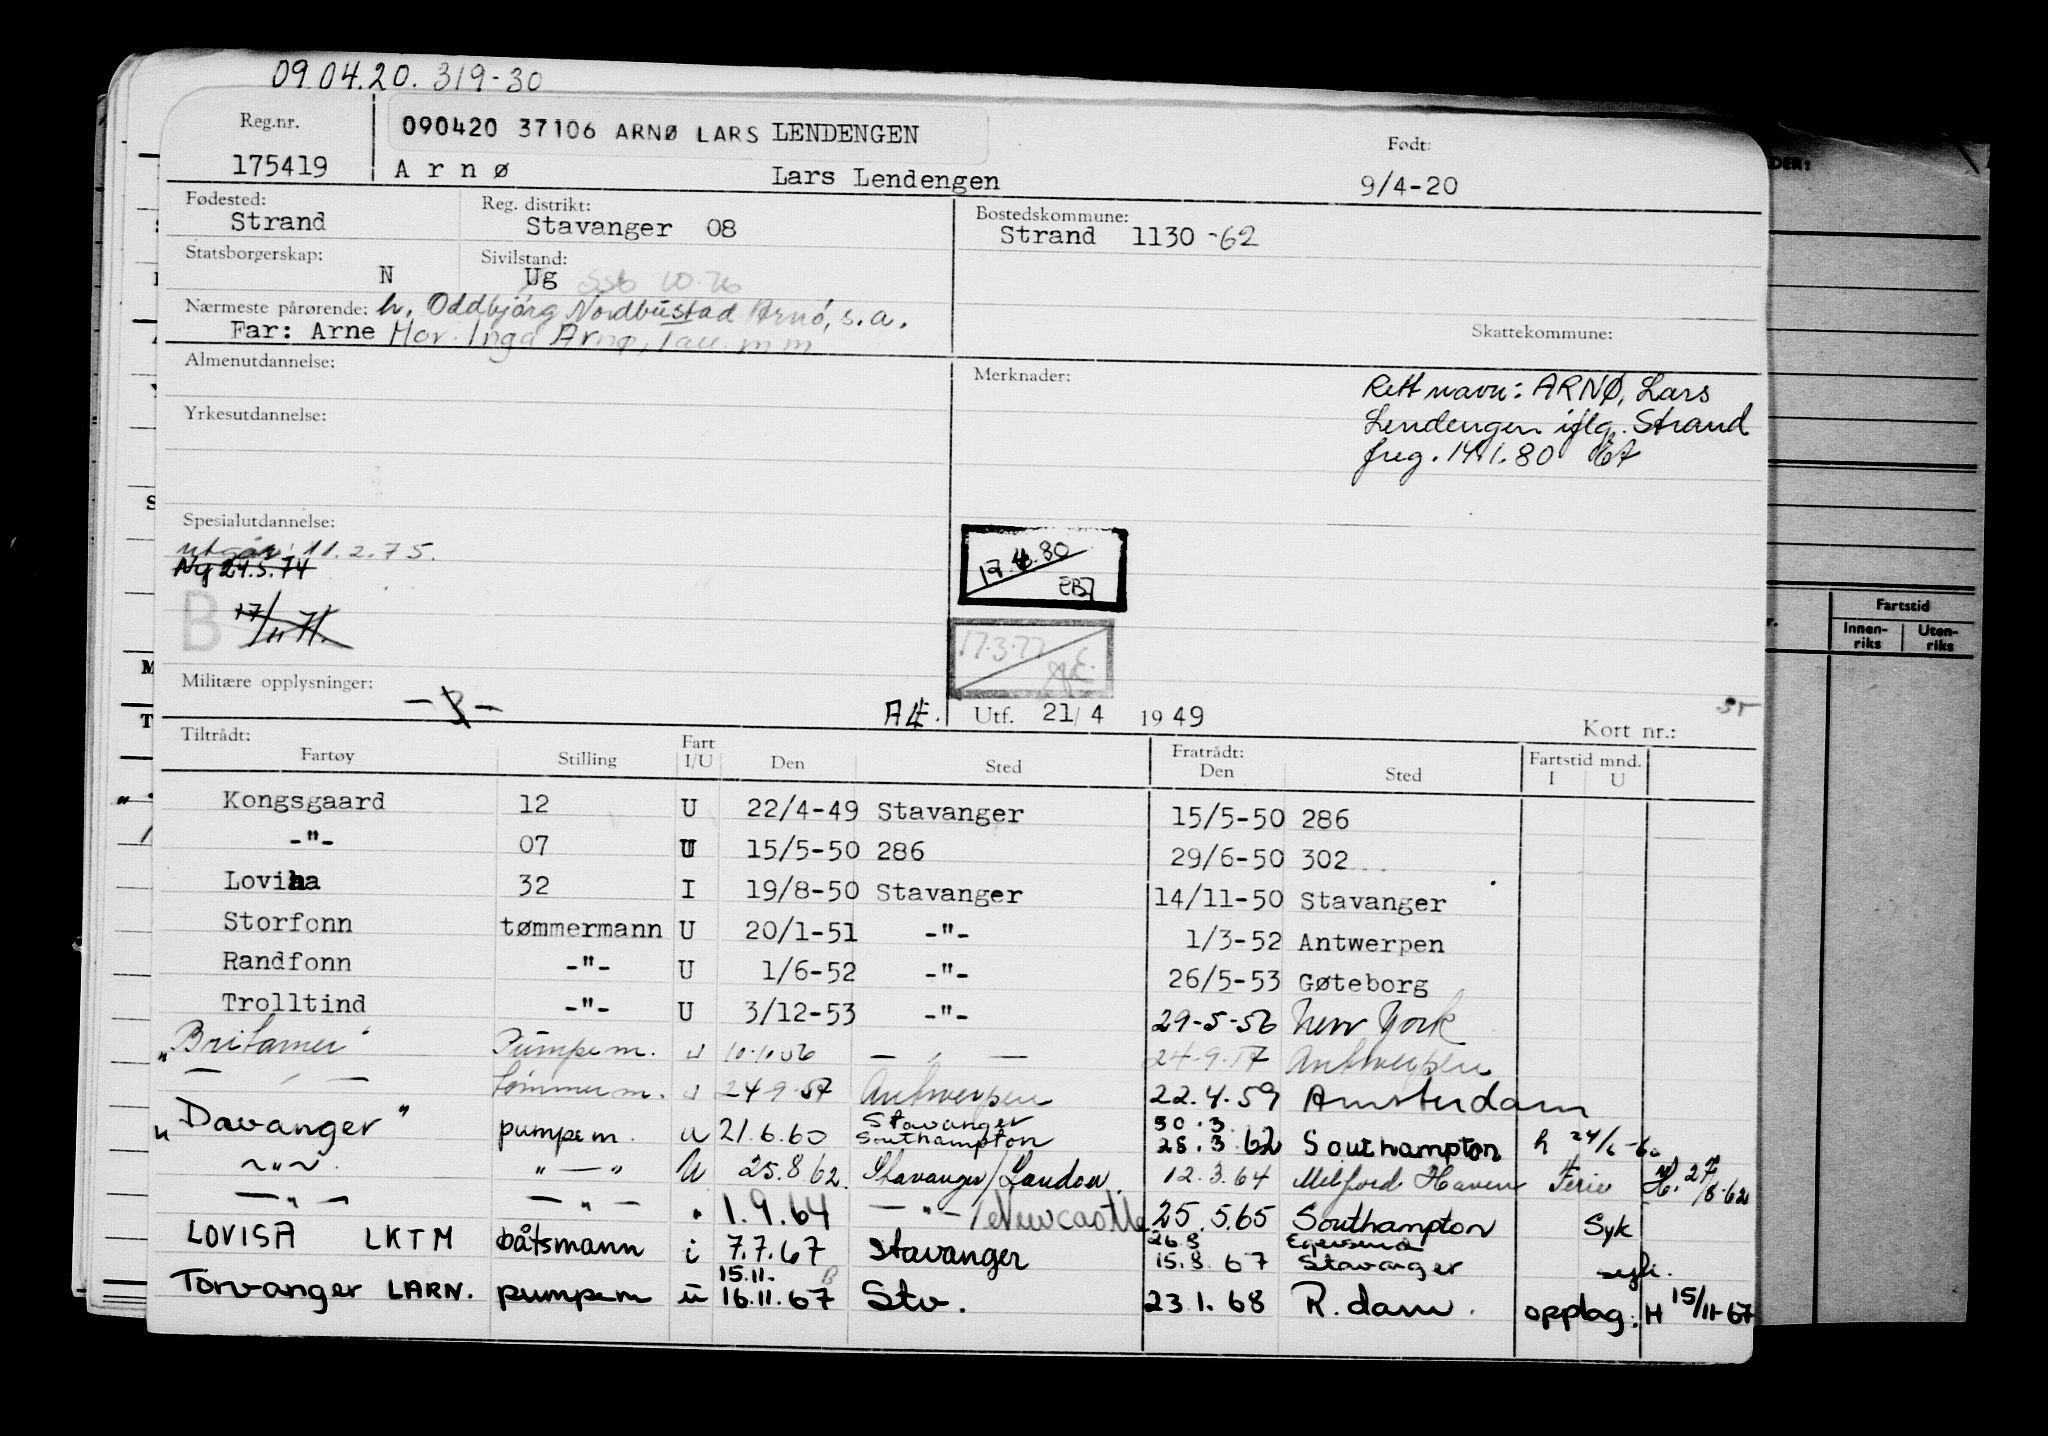 09.04.20. 319-30
Reg.nr.
090420 37106 ARNØ LARS LENDENGEN
Født:
175419 Arnø Lars Lendengen 9/4-20
Fødested: Reg. distrikt: Bostedskommune:
Strand Stavanger 08 Strand 1130 -62
Statsborgerskap: Sivilstand:
N Ug
Nærmeste pårørende: h. Oddbjörg Nordbustad Arnö, s.a.
Far: Arne Mor. Inga Arnø, Tau. m m
Skattekommune:
Almenutdannelse: Merknader:
Rett navn: ARNØ, Lars
Lendengen iflg. Strand
freg. 14.1.80
Yrkesutdannelse:
Spesialutdannelse:
utgår 11.2.75.
Ny 24.5.74
17.4.80
EBJ
B 17/11 71.
17.3.77
Militære opplysninger:
AE. Utf. 21/4 1949 Kort nr.:
Tiltrådt: Fratrådt: Fartstid mnd.
Fartøy Stilling Fart I/U Den Sted Den Sted I U
Kongsgaard 12 U 22/4-49 Stavanger 15/5-50 286
-"- 07 U 15/5-50 286 29/6-50 302
Loviha 32 I 19/8-50 Stavanger 14/11-50 Stavanger
Storfonn tømmermann U 20/1-51 -"- 1/3-52 Antwerpen
Randfonn -"- U 1/6-52 -"- 26/5-53 Gøteborg
Trolltind -"- U 3/12-53 -"- 29-5-56 New York
"Britamer" Pumpem. u 10.10.56 — " — 24.9.57 Antwerpen
— " — tømmerm. u 24.9.57 Antwerpen 22.4.59 Amsterdam
"Davanger" pumpem. u 21.6.60 Stavanger Southampton 30.3 28.3.62 Southampton h 24/6-60
~"~ "—" U 25.8.62. Stavanger/London. 12.3.64 Milford Haven Ferie H. 27/8-62
—"— —"— " 1.9.64 —"—/Newcastle 25.5.65 Southampton Syk
LOVISA LKTM båtsmann i 7.7.67 Stavanger 26.8 15.8.67 Egersund Stavanger
Torvanger LARN. pumpem u 15.11. 16.11.67 Stv. 23.1.68 R.dam. opplag. H 15/11-67
DER:
Fartstid
Innen-riks Uten-riks